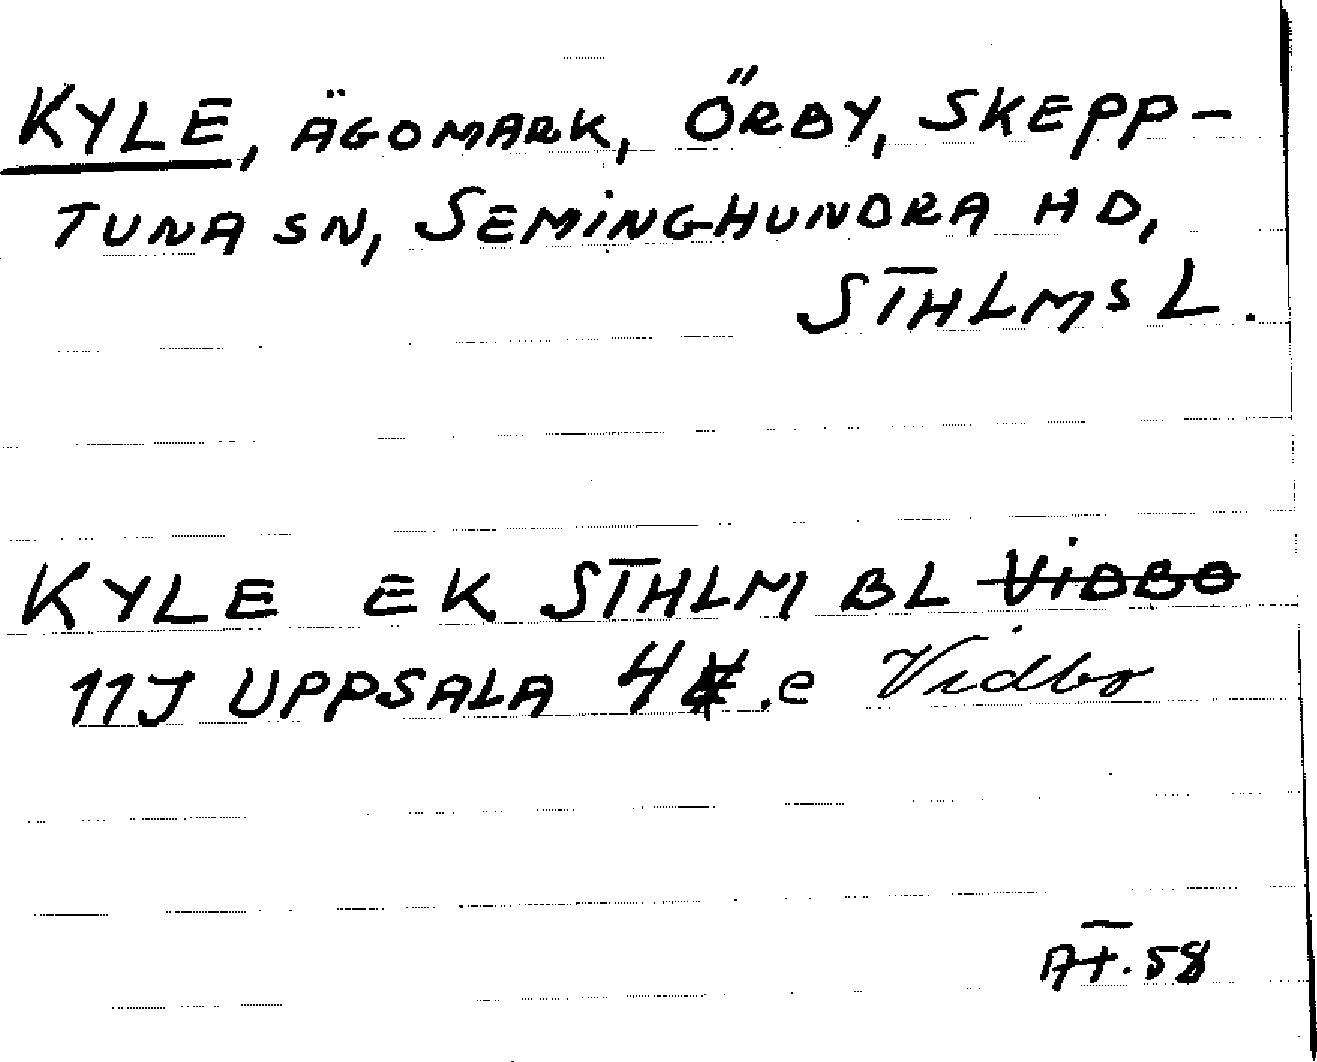 KYLE, ÄGOMARK, ÖRBY, SKEPP-
TUNA SN, SEMINGHUNDRA HD,
STHLMS L.
KYLE EK STHLM BL VIDBO
11J UPPSALA 4 .e Vidbo
AT. 58